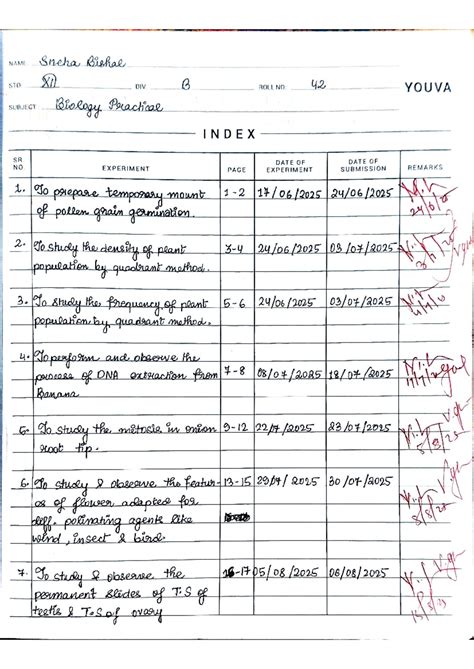 NAME Sneha Bishal
STD. XII DIV. B ROLL NO. 42 YOUVA
SUBJECT Biology Practical
INDEX
SR NO. EXPERIMENT PAGE DATE OF EXPERIMENT DATE OF SUBMISSION REMARKS
1. To prepare temporary mount 1-2 17/06/2025 24/06/2025
of pollen grain germination.
2. To study the density of plant 3-4 24/06/2025 03/07/2025
population by quadrant method.
3. To study the frequency of plant 5-6 24/06/2025 03/07/2025
population by quadrant method.
4. To perform and observe the
process of DNA extraction from 7-8 08/07/2025 18/07/2025
Banana
5. To study the mitosis in onion 9-12 22/7/2025 23/07/2025
root tip.
6. To study & observe the featur- 13-15 29/7/2025 30/07/2025
es of flower adapted for
diff. polinating agents like
wind, insect & bird.
7. To study & observe the 16-17 05/08/2025 06/08/2025
permanent slides of T.S of
testis & T.S of ovary